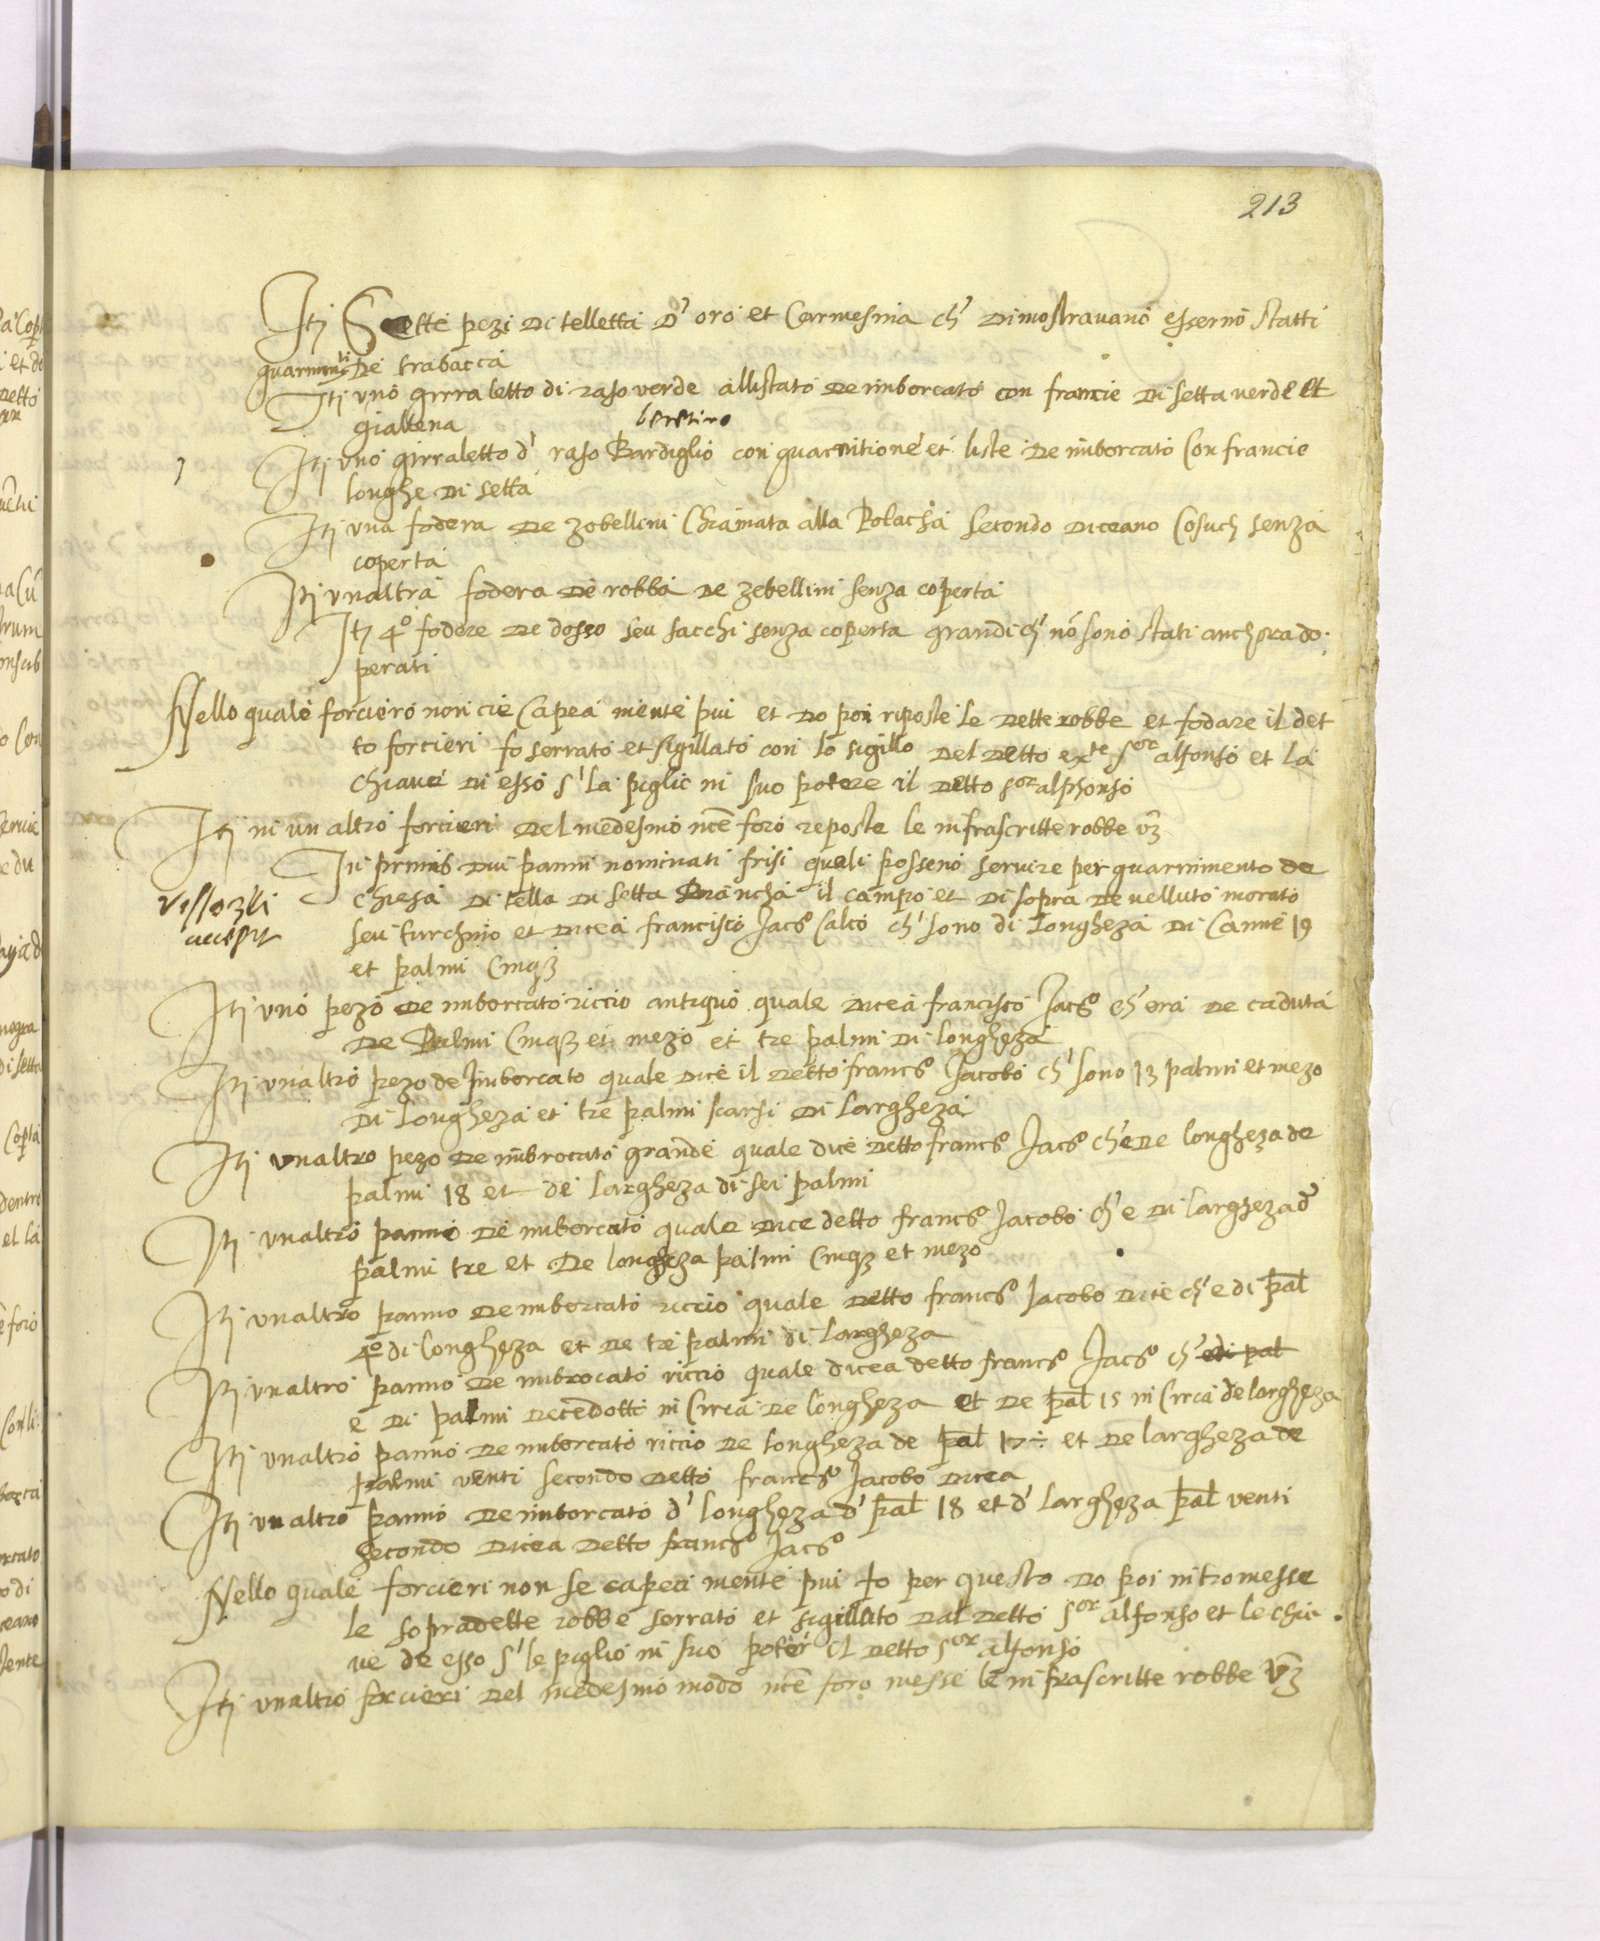 213
Itj Sette pezi di telletta d' oro et Carmesina ch' dimostravano esserno statti
guarnimti de trabacca
Itj uno girraletto di raso verde allistato de imborcato con francie di setta verde et
gialtena
berettino
Itj uno girraletto d' raso Bardiglio con guarnitione et liste de imborcato Con francie
longhe di setta
Itj una fodera de zobellini Chiamata alla Polacha secondo diceano Cosuch senza
coperta
Itj unaltra fodera de robba de zebellini senza coperta
Itj 4º fodere de dosso seu sacchi senza coperta grandi ch' nó sono stati anchora do:
perati
Nello quale forciero non cie Capea niente piu et do poi riposte le dette robbe et fodare il det
to forcieri fo serrato et sigillato con lo sigillo del detto exte sor alfonso et la
chiave di esso s' la piglio in suo potere il detto sor alphonso
Itj in un altro forcieri del medesmo nce foro reposte le infrascritte robbe vz
In primis dui panni nominati frisi quali posseno servire per guarnimento de
chiesa di tella di setta biancha il campo et di sopra de velluto morato
accepit
seu turchino et dicea francisco Jacº Calco ch' sono di Longheza di Canne 19
et palmi Cinq3
Itj uno pezo de imborcato riccio antiquo quale dicea francisco Jacº ch' era de caduta
de Palmi Cinq3 et mezo et tre palmi di longheza
Itj unaltro pezo de Imborcato quale dice il detto francº Jacobo ch' sono 13 palmi et mezo
di Longheza et tre palmi scarsi di Largheza
Itj unaltro pezo de imbrocato grande quale dice detto francº Jacº ch' e de longheza de
palmi 18 et de largheza di sei palmi
Itj unaltro panno de imborcato quale dice detto francº Jacobo ch' e di largheza d'
palmi tre et de longheza palmi Cinq3 et mezo
Itj unaltro panno de imborcato riccio quale detto francº Jacobo dice ch' e di pal
4º di longheza et de tre palmi di largheza
Itj unaltro panno de imbrocato riccio quale dicea detto francº Jacº ch' e di pal
e di palmi decedotti in Circa de longheza et de pal 15 in Circa de largheza
Itj unaltro panno de imborcato riccio de longheza de pal 17 ÷ et de largheza de
palmi venti secondo detto francº Jacobo dicea
Itj unaltro panno de imborcato d' longheza d' pal 18 et d' largheza pal venti
secondo dicea detto francº Jacº
Nello quale forcieri non se capeci niente piu fo per questo do poi intromesse
le sopradette robbe serrato et sigillato dal detto sor alfonso et le chia
ve de esso s' le piglio in suo poter il detto sor alfonso
Itj unaltro forcieri del medesmo modo nce foro messe le infrascritte robbe vz